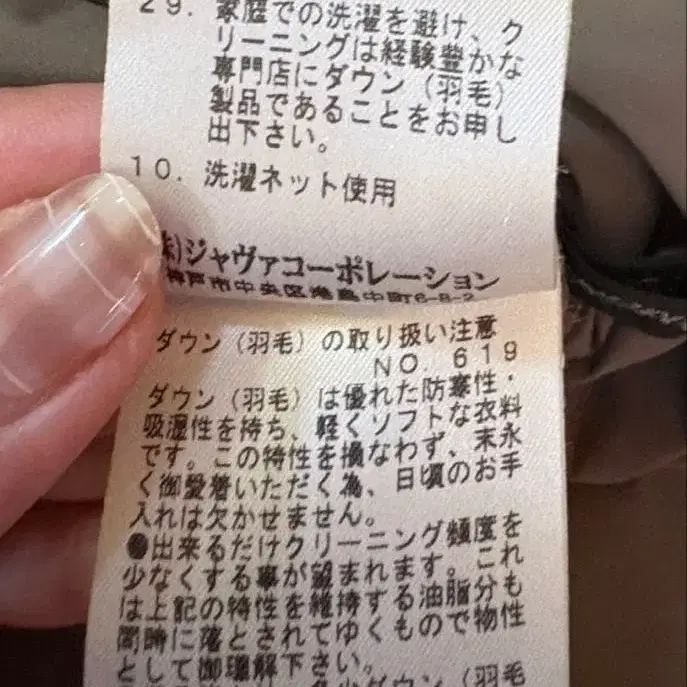 29. 家庭での洗濯を避け、ク
リーニングは経験豊かな
専門店にダウン（羽毛）
製品であることをお申し
出下さい。
10. 洗濯ネット使用
㈱ジャヴァコーポレーション
神戸市中央区港島中町6-8-2
ダウン（羽毛）の取り扱い注意
NO. 619
ダウン（羽毛）は優れた防寒性・
吸湿性を持ち、軽くソフトな衣料
です。この特性を損なわず、末永
く御愛着いただく為、日頃のお手
入れは欠かせません。
●出来るだけクリーニング頻度を
少なくする事が望まれます。これ
は上記の特性を維持する油脂分も
同時に落とされてゆくもので物性
として御理解下さい。
ダウン（羽毛